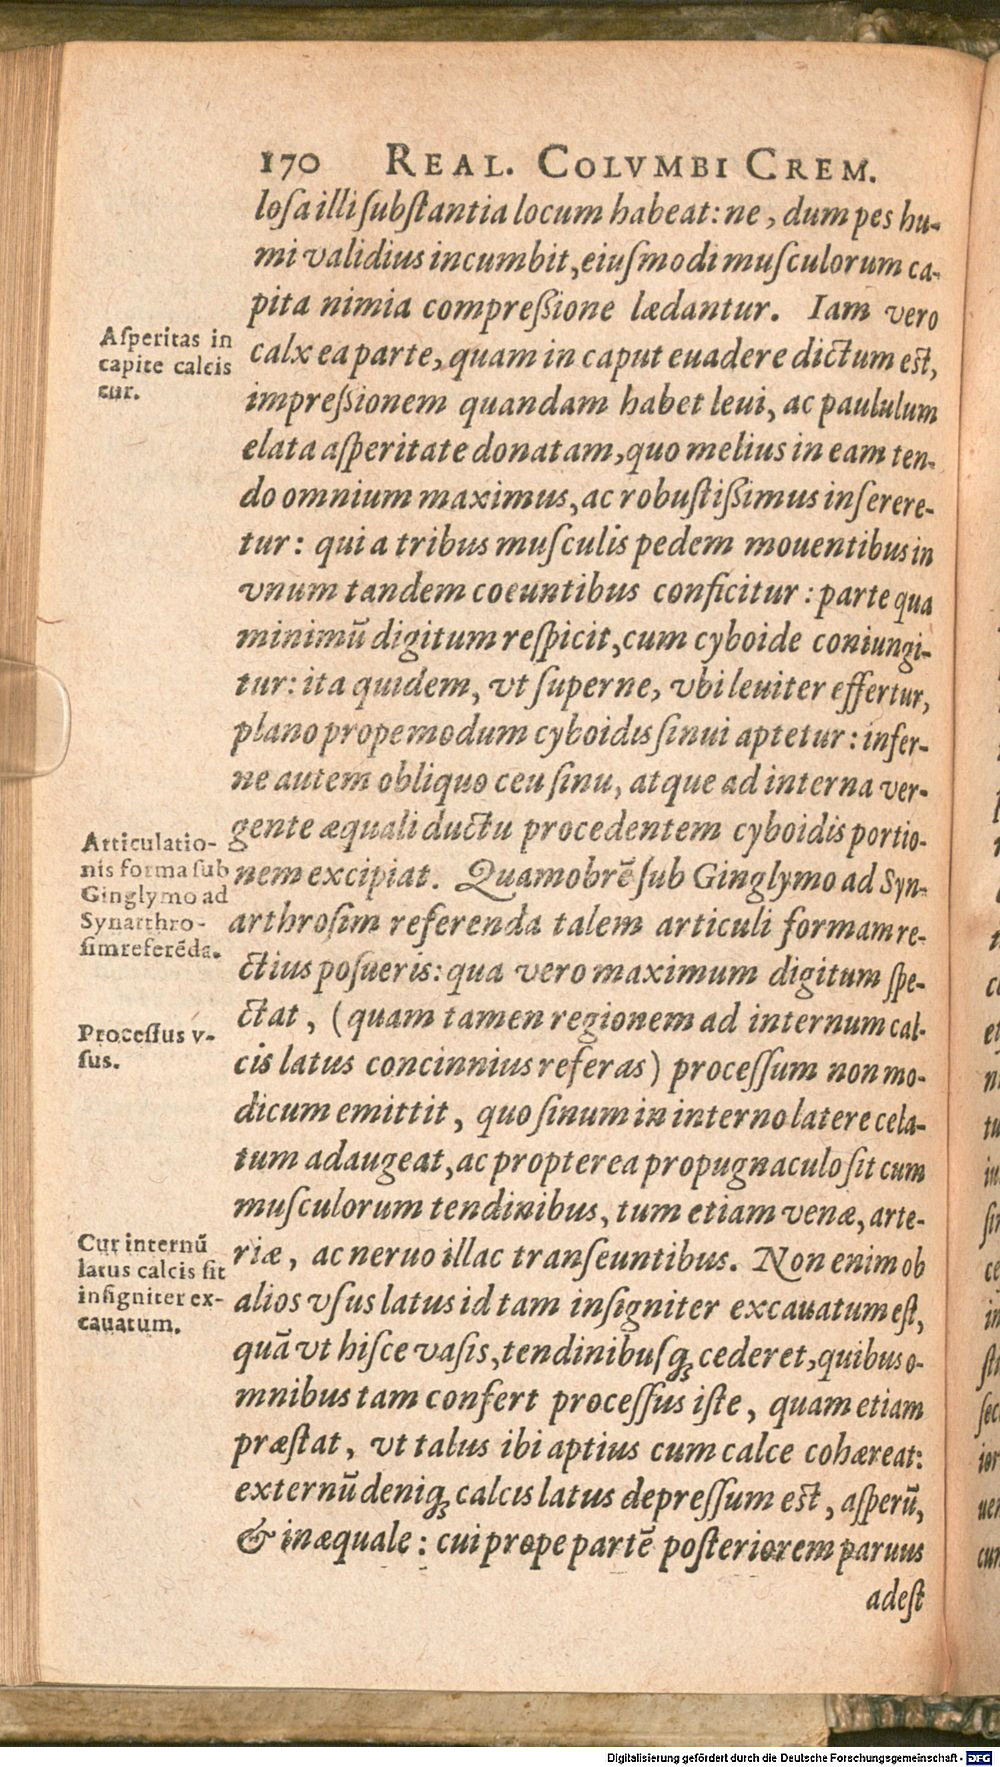 170 REAL. COLVMBI CREM.
losa illi substantia locum habeat: ne, dum pes hu-
mi validius incumbit, eiusmodi musculorum ca-
pita nimia compreßione lædantur. Iam vero
Asperitas in
capite calcis
cur.
calx ea parte, quam in caput euadere dictum est,
impreßionem quandam habet leui, ac paululum
elata asperitate donatam, quo melius in eam ten-
do omnium maximus, ac robustißimus inserere-
tur: qui a tribus musculis pedem mouentibus in
vnum tandem coeuntibus conficitur: parte qua
minimũ digitum respicit, cum cyboide coniungi-
tur: ita quidem, vt superne, vbi leuiter effertur,
plano propemodum cyboidis sinui aptetur: infer-
ne autem obliquo ceu sinu, atque ad interna ver-
gente æquali ductu procedentem cyboidis portio-
Articulatio-
nis forma sub
Ginglymo ad
Synarthro-
sim referẽda.
nem excipiat. Quamobrẽ sub Ginglymo ad Syn-
arthrosim referenda talem articuli formam re-
ctius posueris: qua vero maximum digitum spe-
ctat, (quam tamen regionem ad internum cal-
Processus v-
sus.
cis latus concinnius referas) processum non mo-
dicum emittit, quo sinum in interno latere cela-
tum adaugeat, ac propterea propugnaculo sit cum
musculorum tendinibus, tum etiam venæ, arte-
riæ, ac neruo illac transeuntibus. Non enim ob
Cur internũ
latus calcis sit
insigniter ex-
cauatum.
alios vsus latus id tam insigniter excauatum est,
quã vt hisce vasis, tendinibusq; cederet, quibus o-
mnibus tam confert processus iste, quam etiam
præstat, vt talus ibi aptius cum calce cohæreat:
externũ deniq; calcis latus depressum est, asperũ,
& inæquale: cui prope partẽ posteriorem paruus
adest
Digitalisierung gefördert durch die Deutsche Forschungsgemeinschaft - DFG